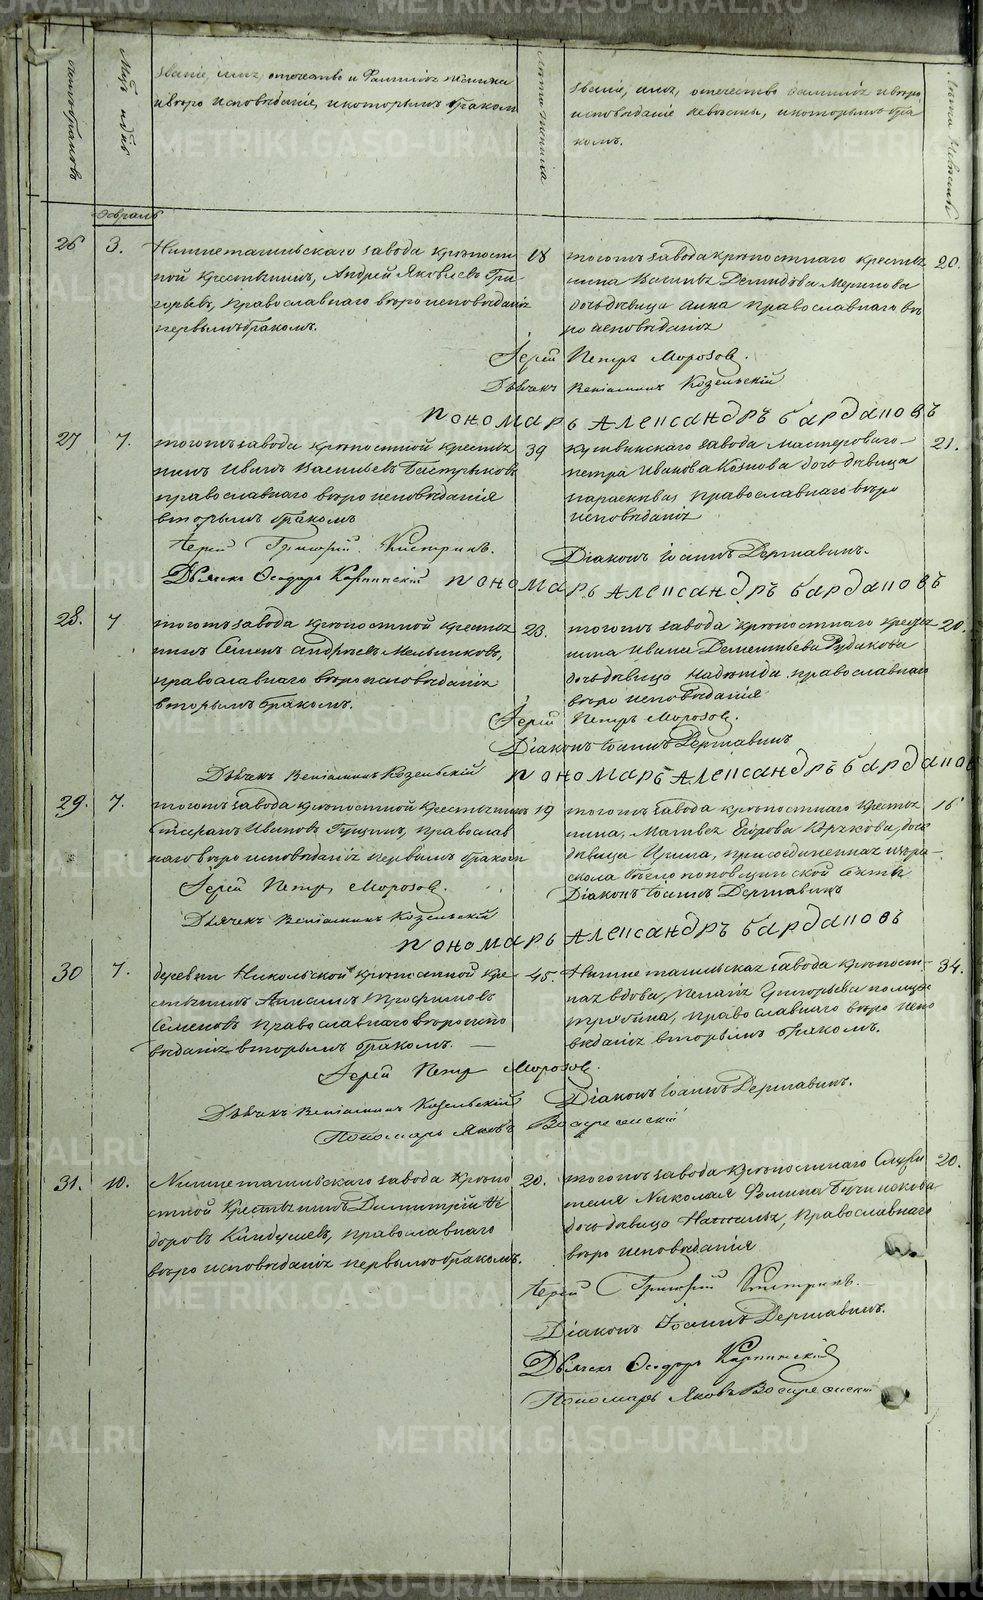 METRIKI.GASO-URAL.RU
Счетъ браковъ
Мцъ и дн
званіе, имя, отечество и Фамилія жениха
и вѣро исповѣданіе, и которымъ бракомъ
Лѣта жениха
званіе, имя, отечество Фамилія и вѣро
исповѣданіе невѣсты, и которымъ бра
комъ.
Лѣта невѣсты
Февраль
26
3.
Нижнетагильскаго завода крѣпост
ной крестьянинъ, Андрей Яковлевъ Гри
горьевъ, православнаго вѣроисповѣданія
первымъ бракомъ.
18
тогожъ завода крѣпостнаго крестья
нина Василья Демидова
дочь дѣвица Анна православнаго вѣ
роисповѣданія
20.
Іерей Петръ Морозовъ.
Дьячекъ Веніаминъ Козельскій
пономарь Александръ Бардановъ
27
7.
тогожъ завода крѣпостной крестья
нинъ Иванъ Васильевъ
православнаго вѣроисповѣданія
вторымъ бракомъ
39
Кушвинскаго завода мастероваго
Петра Иванова дочь дѣвица
Параскева православнаго вѣро
исповѣданія
21.
Іерей Григорій
Діаконъ Іоаннъ Державинъ.
Дьячекъ Ѳеодоръ Карпинскій пономарь Александръ Бардановъ
28.
7
тогожъ завода крѣпостной крестья
нинъ Семенъ Андреевъ Мельниковъ,
православнаго вѣроисповѣданія
вторымъ бракомъ.
23.
тогожъ завода крѣпостнаго крестья
нина Ивана Дементьева Рудакова
дочь дѣвица Надежда православнаго
вѣроисповѣданія
20.
Іерей Петръ Морозовъ.
Діаконъ Іоаннъ Державинъ
Дьячекъ Веніаминъ Козельскій пономарь Александръ Бардановъ
29.
7.
тогожъ завода крѣпостной крестьянинъ
Стефанъ Ивановъ Гущинъ, православ
наго вѣроисповѣданія первымъ бракомъ
19
тогожъ завода крѣпостнаго крестья
нина, Матвея Егорова дочь
дѣвица Ирина, присоединенная изъ ра-
скола бѣглопоповщинской секты
16
Іерей Петръ Морозовъ.
Діаконъ Іоаннъ Державинъ
Дьячекъ Веніаминъ Козельскій
пономарь Александръ Бардановъ
30
7.
деревни Никольской крѣпостной кре-
стьянинъ Трофимовъ
Семеновъ православнаго вѣроиспо
вѣданія вторымъ бракомъ.
45.
Нижнетагильскаго завода крѣпост-
ная вдова, Пелагія Григорьева
православнаго вѣроиспо
вѣданія вторымъ бракомъ.
34.
Іерей Петръ Морозовъ.
Діаконъ Іоаннъ Державинъ.
Дьячекъ Веніаминъ Козельскій
Пономарь Яковъ Воскресенскій
31.
10.
Нижнетагильскаго завода крѣпо
стной крестьянинъ Димитрій Ѳе
доровъ православнаго
вѣроисповѣданія первымъ бракомъ.
20.
тогожъ завода крѣпостнаго служи
теля Николая Фомина
дочь дѣвица Наталья, православнаго
вѣроисповѣданія
20.
Іерей Григорій
Діаконъ Іоаннъ Державинъ.
Дьячекъ Ѳеодоръ Карпинскій
Пономарь Яковъ Воскресенскій